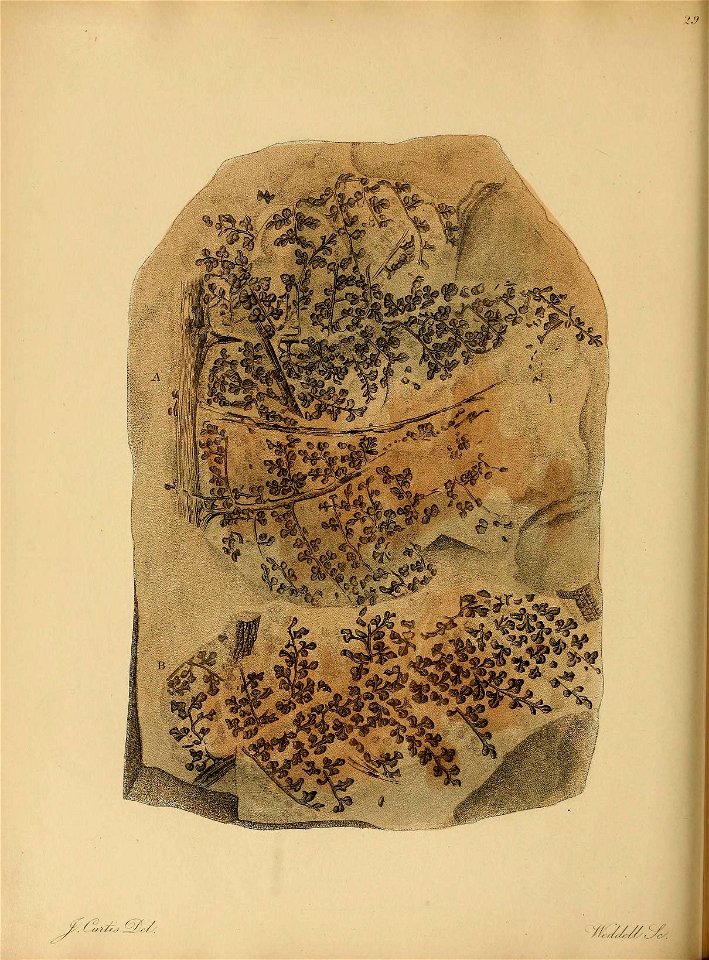 29
A
B
J. Curtis Del.
Weddell Sc.